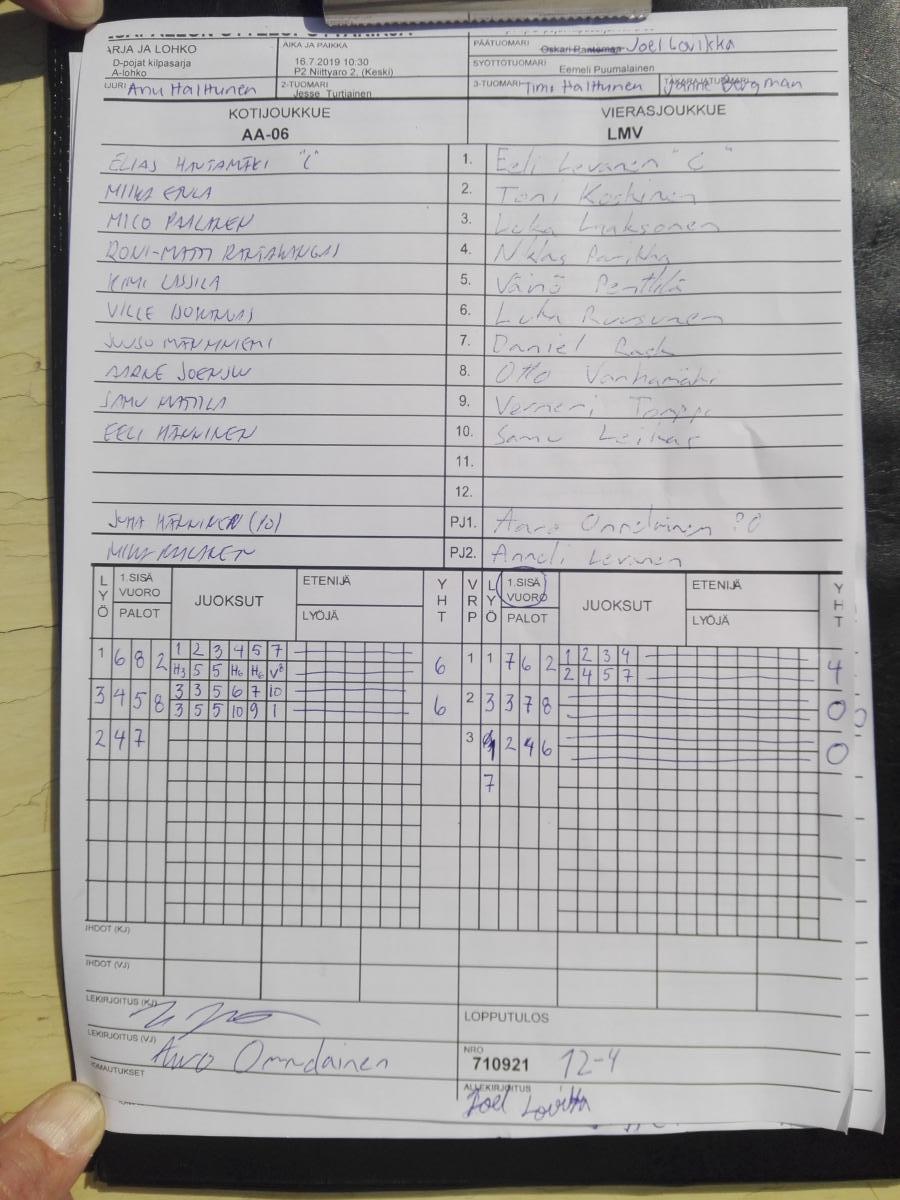 ARJA JA LOHKO
D-pojat kilpasarja
A-lohko
AIKA JA PAIKKA
16.7.2019 10:30
P2 Niittyaro 2, (Keski)
PÄÄTUOMARI Oskari Rantamaa Joel Lovikka
SYÖTTÖTUOMARI
Eemeli Puumalainen
URI Anu Halttunen
2-TUOMARI
Jesse Turtiainen
3-TUOMARI Timi Halttunen
TAKARAJATUOMARI Janne Bergman
KOTIJOUKKUE
AA-06
VIERASJOUKKUE
LMV
ELIAS HAUTAMÄKI "C" 1. Eeli Levanen "C"
MIIKA ENLA 2. Toni Koskinen
MICO PAALANEN 3. Luka Liuksonen
RONI-MATTI RANTAKANGAS 4. Niklas Parikka
KIMI LASSILA 5. Väinö Penttilä
VILLE 6. Luka Ruusunen
JUUSO MÄNNNIEMI 7. Daniel
AARNE JOENSUU 8. Otto Vanhamäki
SAMU MATTILA 9. Verneri Tamppi
EELI HÄNNINEN 10. Samu Leikas
11.
12.
JUHA HÄNNINEN (10) PJ1. Aaro Onnelainen
PJ2. Anneli Levanen
LYÖ 1.SISÄ VUORO PALOT JUOKSUT ETENIJÄ LYÖJÄ YHT VRP LYÖ 1.SISÄ VUORO PALOT JUOKSUT ETENIJÄ LYÖJÄ YHT
1 6 8 2 1 2 3 4 5 7 6 1 1 7 6 2 1 2 3 4 4
H3 5 5 H6 H6 V8 2 4 5 7
3 4 5 8 3 3 5 6 7 10 6 2 3 3 7 8 0
3 5 5 10 9 1
2 4 7 3 2 4 6 0
7
IHDOT (KJ)
IHDOT (VJ)
LEKIRJOITUS (KJ)
LOPPUTULOS
LEKIRJOITUS (VJ) Aaro Onnelainen
NRO
710921 12-4
OMAUTUKSET
ALLEKIRJOITUS
Joel Lovikka